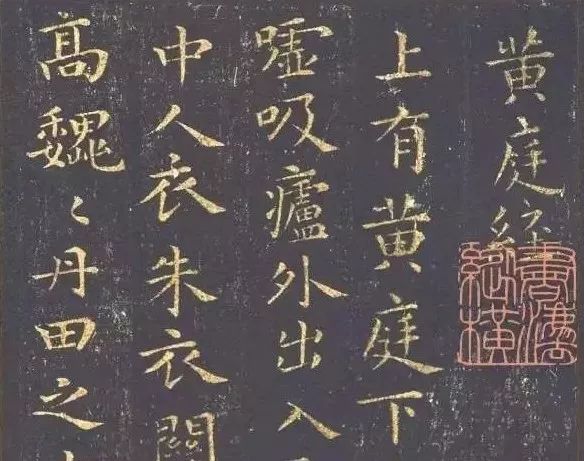 黄庭經
上有黄庭下
嘘吸廬外出入
中人衣朱衣關
高巍〻丹田之
書法縱橫